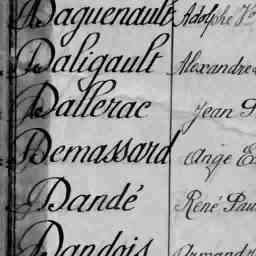 Daguenault Adolphe
Daligault Alexandre
Dallerac Jean
Demassard Ange E
Dandé René Pau
Dandois Armand